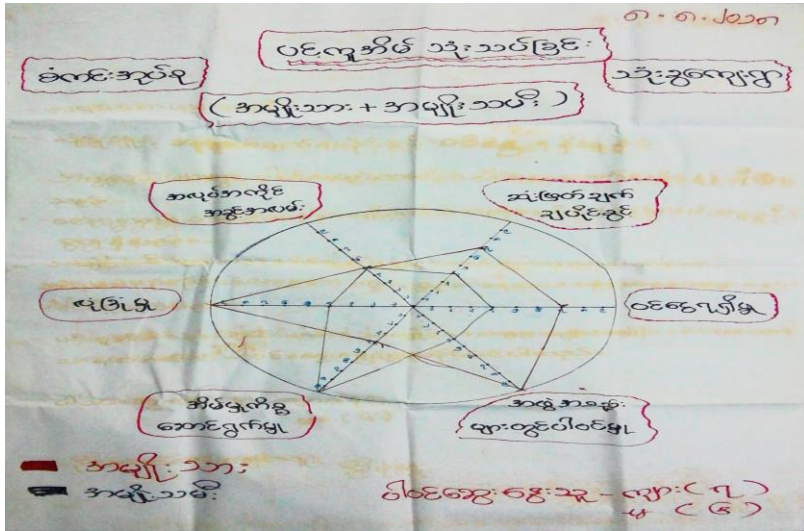 ၈-၈-၂၀၁၈
ပင့်ကူအိမ် သုံးသပ်ခြင်း
စံကင်းအုပ်စု
သုံးခွကျေးရွာ
(အမျိုးသား + အမျိုးသမီး)
အလုပ်အကိုင်
အခွင့်အလမ်း
ဆုံးဖြတ်ချက်
ချပိုင်ခွင့်
လုံခြုံမှု
ဝင်ငွေရရှိမှု
အိမ်မှုကိစ္စ
ဆောင်ရွက်မှု
အဖွဲ့အစည်း
များတွင်ပါဝင်မှု
အမျိုးသား
အမျိုးသမီး
ပါဝင်ဆွေးနွေးသူ - ကျား (၇)
မ (၆)